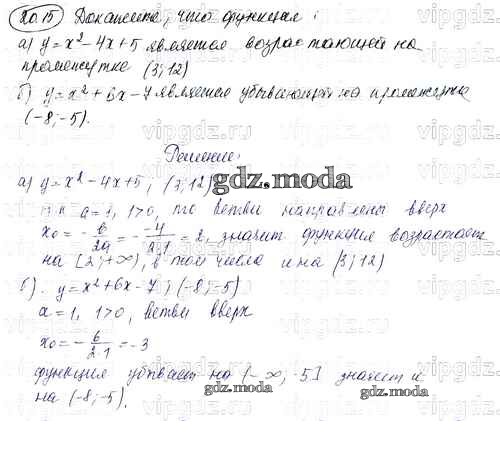 20.15 Докажите, что функция:
а) y = x² - 4x + 5 является возрастающей на
промежутке (3; 12)
б) y = x² + 6x - 7 является убывающей на промежутке
(-8; -5).
Решение:
а) y = x² - 4x + 5, (3; 12)
gdz.moda
т.к a = 1, 1>0, то ветви направлены вверх
x₀ = - b/2a = - -4/2·1 = 2, значит функция возрастает
на [2; +∞), в том числе и на (3; 12)
gdz.moda
б). y = x² + 6x - 7; (-8; -5)
a = 1, 1>0, ветви вверх
x₀ = - 6/2·1 = -3
функция убывает на (-∞; -5] значит и
на (-8; -5).
gdz.moda
gdz.moda
vipgdz.ru